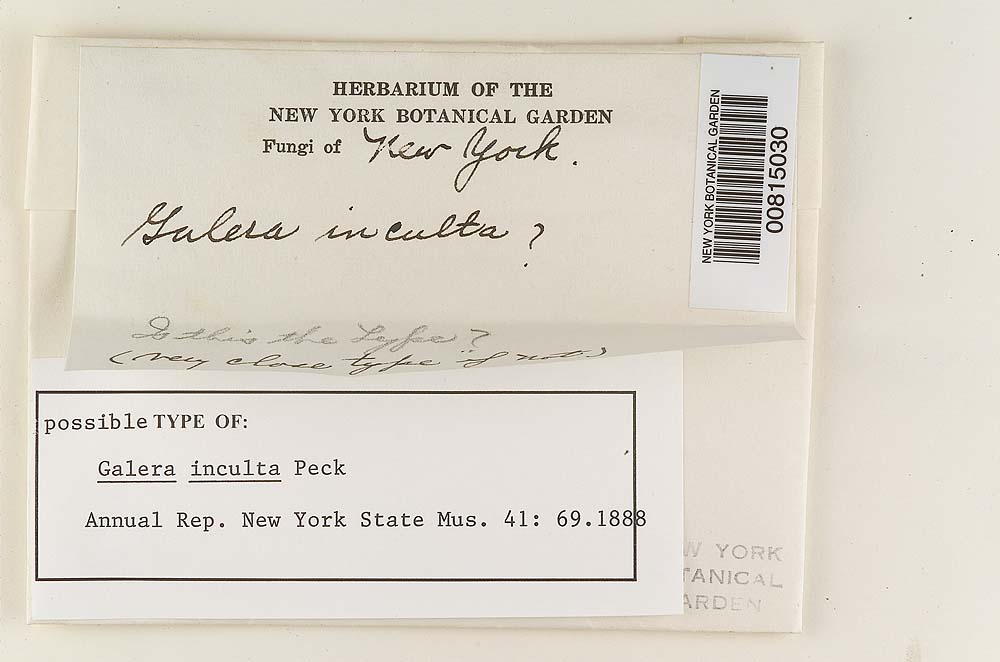 HERBARIUM OF THE
NEW YORK BOTANICAL GARDEN
Fungi of New York.
Galera inculta ?
Is this the type ?
(very close type if not)
NEW YORK BOTANICAL GARDEN
00815030
possible TYPE OF:
Galera inculta Peck
Annual Rep. New York State Mus. 41: 69.1888
W YORK
TANICAL
ARDEN